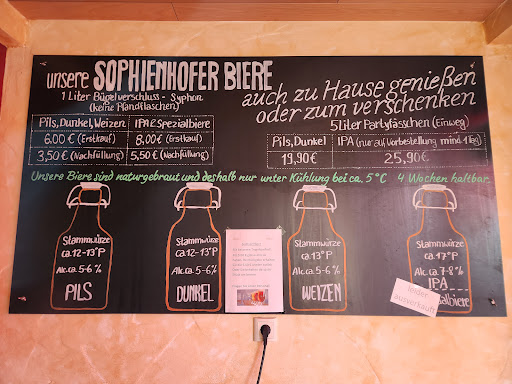 unsere SOPHIENHOFER BIERE
1 Liter Bügelverschluss - Syphon
(keine Pfandflaschen)
Pils, Dunkel, Weizen IPA & Spezialbiere
6.00 € (Erstkauf) 8.00 € (Erstkauf)
3,50 € (Nachfüllung) 5,50 € (Nachfüllung)
auch zu Hause genießen
oder zum verschenken
5 Liter Partyfässchen (Einweg)
Pils, Dunkel IPA (nur auf Vorbestellung mind. 1 Tag)
19,90€ 25,90€
Unsere Biere sind naturgebraut und deshalb nur unter Kühlung bei ca. 5°C 4 Wochen haltbar.
Stammwürze
ca. 12-13°P
Alc. ca. 5-6%
PILS
Stammwürze
ca. 12-13°P
Alc. ca. 5-6%
DUNKEL
Stammwürze
ca. 13°P
Alc. ca. 5-6%
WEIZEN
Stammwürze
ca. 17°P
Alc. ca. 7-8%
IPA
leider
ausverkauft